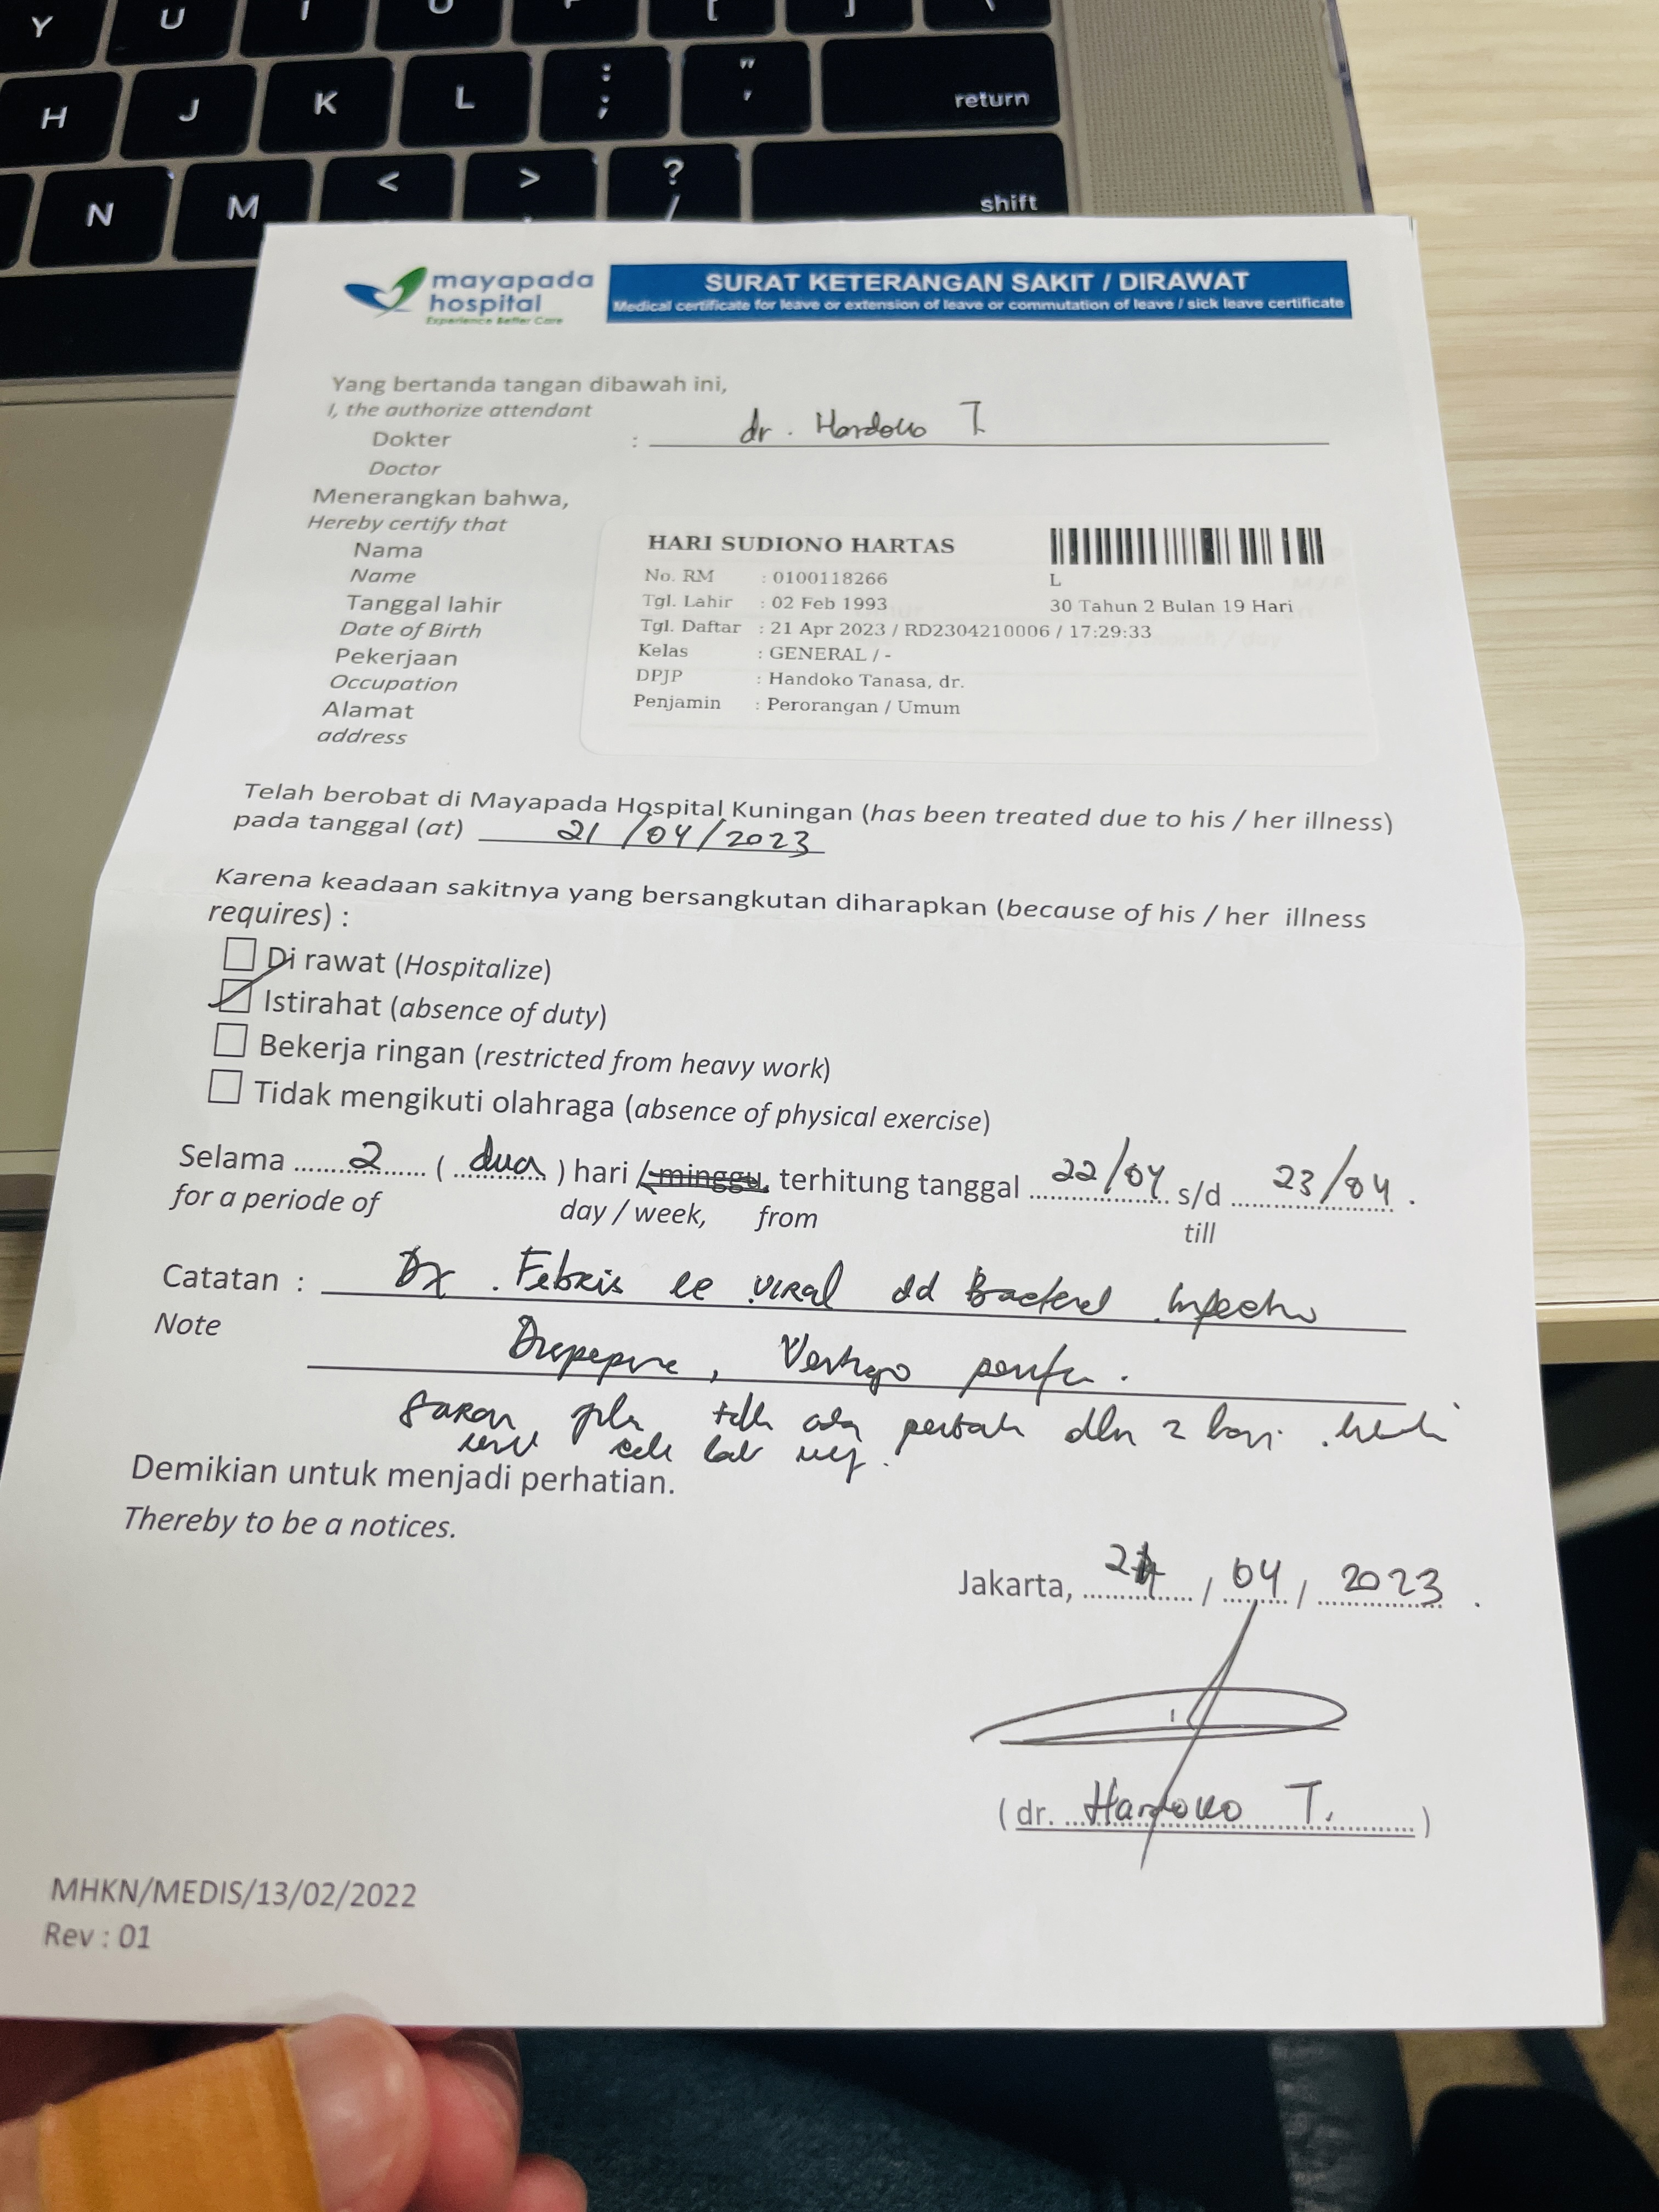 Y U I O P [ ] \
H J K L : ; " ' return
N M < > ? / shift
mayapada
hospital
Experience Better Care
SURAT KETERANGAN SAKIT / DIRAWAT
Medical certificate for leave or extension of leave or commutation of leave / sick leave certificate
Yang bertanda tangan dibawah ini,
I, the authorize attendant
Dokter : dr. Handoko T.
Doctor
Menerangkan bahwa,
Hereby certify that
Nama
Name
Tanggal lahir
Date of Birth
Pekerjaan
Occupation
Alamat
address
HARI SUDIONO HARTAS
No. RM : 0100118266 L
Tgl. Lahir : 02 Feb 1993 30 Tahun 2 Bulan 19 Hari
Tgl. Daftar : 21 Apr 2023 / RD2304210006 / 17:29:33
Kelas : GENERAL / -
DPJP : Handoko Tanasa, dr.
Penjamin : Perorangan / Umum
Telah berobat di Mayapada Hospital Kuningan (has been treated due to his / her illness)
pada tanggal (at) 21/04/2023
Karena keadaan sakitnya yang bersangkutan diharapkan (because of his / her illness
requires) :
Di rawat (Hospitalize)
Istirahat (absence of duty)
Bekerja ringan (restricted from heavy work)
Tidak mengikuti olahraga (absence of physical exercise)
Selama 2 ( dua ) hari / minggu, terhitung tanggal 22/04 s/d 23/04 .
for a periode of day / week, from till
Catatan : Dx . Febris ec viral dd Bacterial
Note
Vertigo
Saran 2 hari
lab
Demikian untuk menjadi perhatian.
Thereby to be a notices.
Jakarta, 21 / 04 / 2023 .
(dr. Handoko T. )
MHKN/MEDIS/13/02/2022
Rev : 01